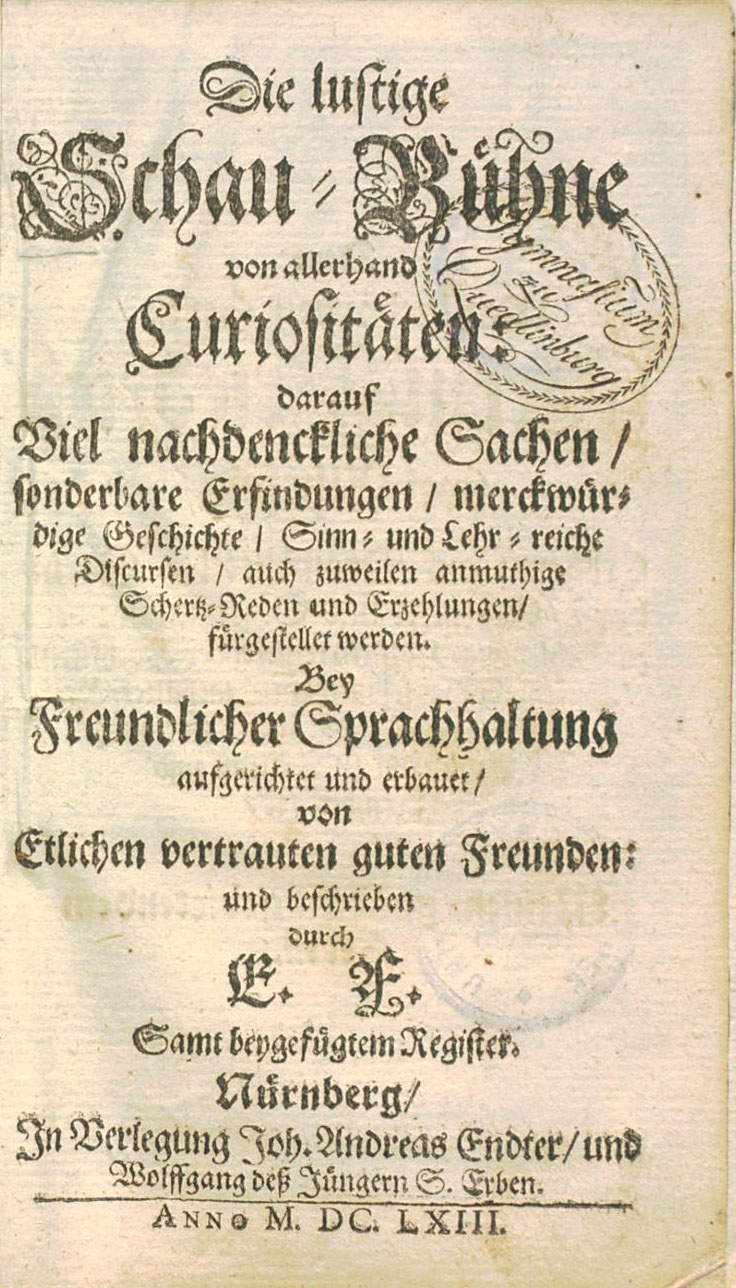 Die lustige
Schau-Bühne
von allerhand
Curiositäten:
darauf
Viel nachdenckliche Sachen /
sonderbare Erfindungen / merckwür-
dige Geschichte / Sinn- und Lehr-reiche
Discursen / auch zuweilen anmuthige
Schertz-Reden und Erzehlungen /
fürgestellet werden.
Bey
Freundlicher Sprachhaltung
aufgerichtet und erbauet /
von
Etlichen vertrauten guten Freunden:
und beschrieben
durch
E. F.
Samt beygefügtem Register.
Nürnberg /
In Verlegung Joh. Andreas Endter / und
Wolffgang deß Jüngern S. Erben.
ANNO M. DC. LXIII.
Gymnasium
zu
Quedlinburg